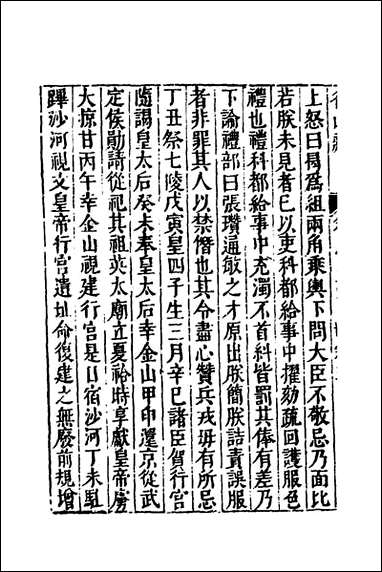 上怒曰曷爲組兩角乘輿下問大臣不敬忌乃面比
若朕未見者已以吏科都給事中擢劾疏回護服色
禮也禮科都給事中充濁不首糾皆罰其俸有差乃
下諭禮部曰張瓚通敏之才原出朕簡朕詰責誤服
者非罪其人以禁僭也其令盡心贊兵戎毋有所忌
丁丑祭七陵戊寅皇四子生三月辛巳諸臣賀行宮
隨謁皇太后癸未奉皇太后幸金山甲申還京從武
定侯勛請從祀其祖英太廟立夏祫時享獻皇帝虜
大掠甘丙午幸金山視建行宮是日宿沙河丁未駐
蹕沙河視文皇帝行宮遺址命復建之無廢前規增